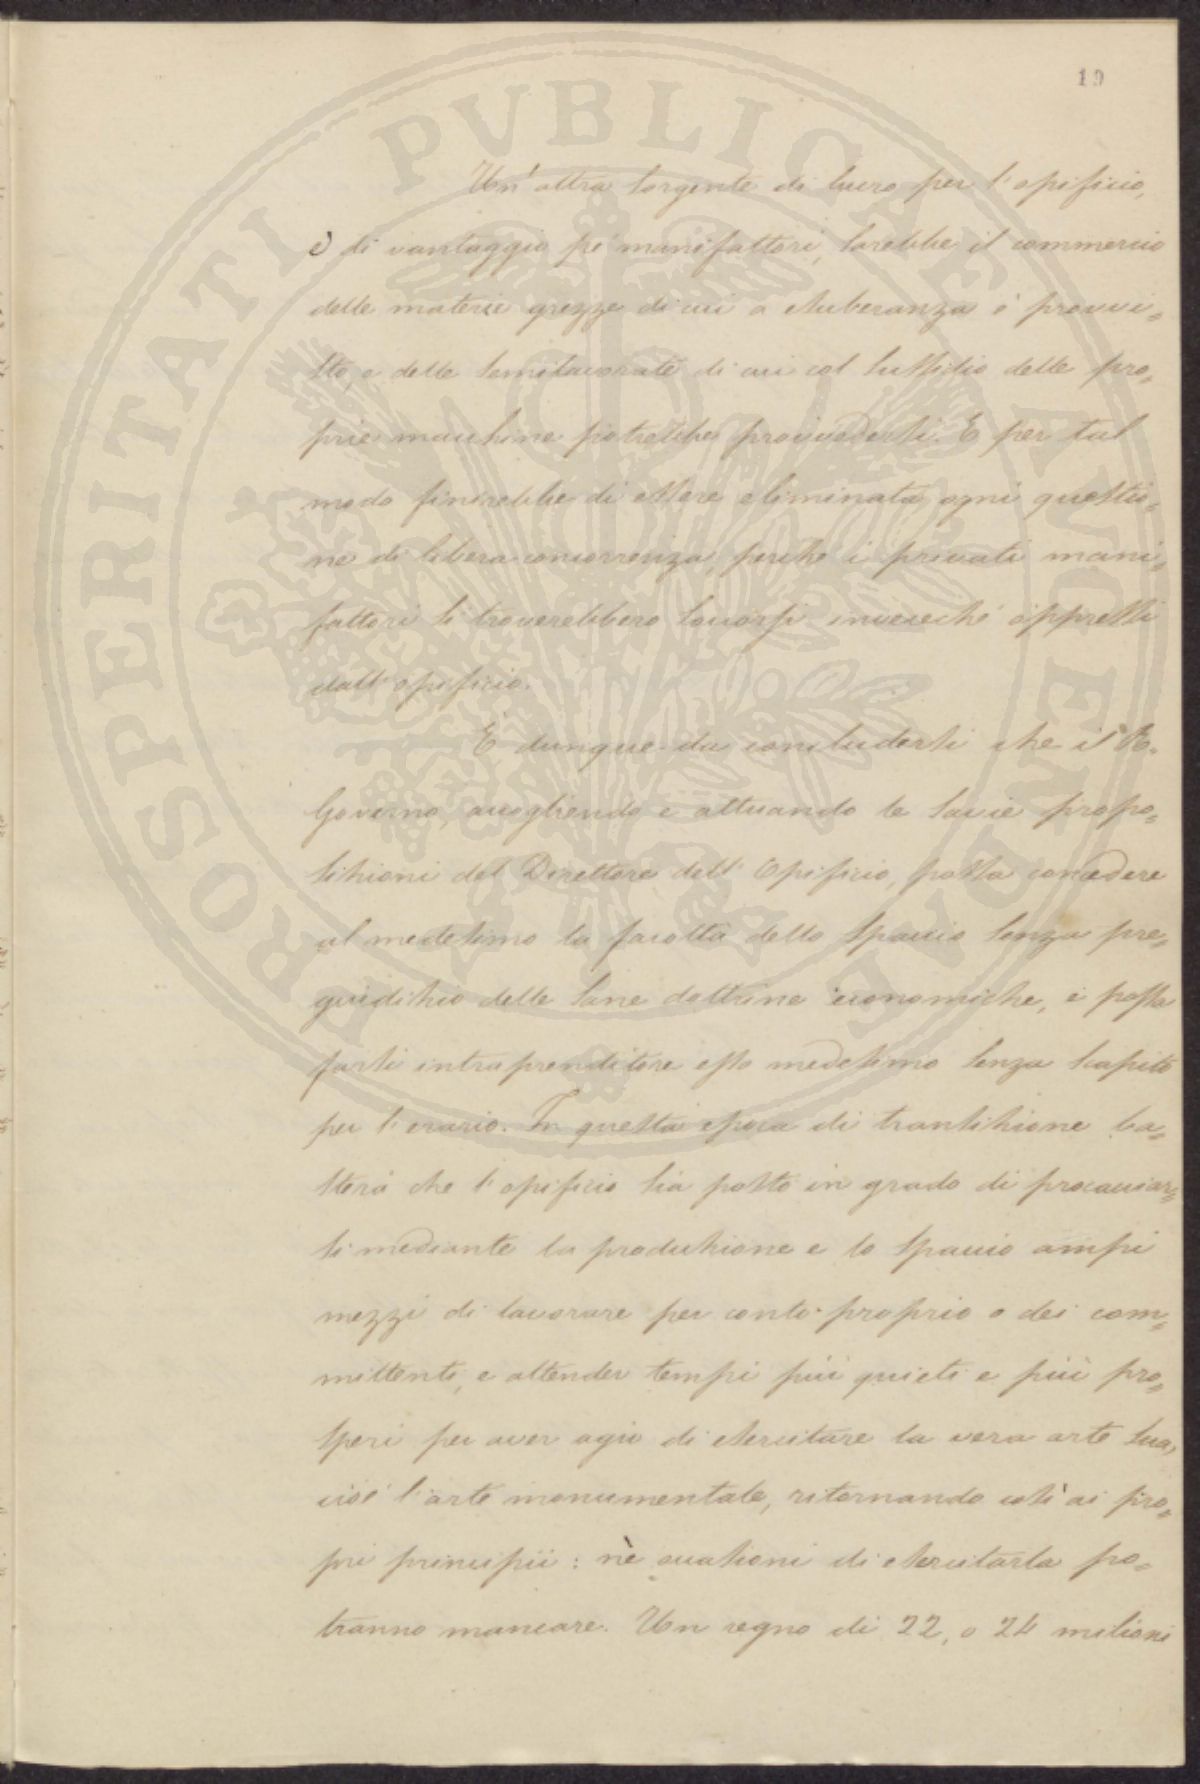 19
PROSPERITATI PVBLICAE AVGENDAE
Un' altra sorgente di lucro per l' opificio,
e di vantaggio pe' manifattori, sarebbe il commercio
delle materie grezze di cui a esuberanza è provvi=
sto, e delle semilavorate di cui col sussidio delle pro=
prie macchine potrebbe provvedersi. E per tal
modo finirebbe di essere eliminata ogni questio=
ne di libera concorrenza, perchè i privati mani=
fattori si troverebbero soccorsi invecechè oppressi
dall' opificio.
È dunque da concludersi che il R.
Governo, accogliendo e attuando le savie propo=
sizioni del Direttore dell' Opificio, possa concedere
al medesimo la facoltà dello spaccio senza pre=
giudizio delle sane dottrine economiche, e possa
farsi intraprenditore esso medesimo senza scapito
per l' erario. In questa epoca di transizione ba=
sterà che l' opificio sia posto in grado di procacciar=
si mediante la produzione e lo spaccio ampi
mezzi di lavorare per conto proprio o dei com=
mittenti, e attender tempi più quieti e più pro=
speri per aver agio di esercitare la vera arte sua,
cioè l' arte monumentale, ritornando così ai pro=
pri principii: nè occasioni di esercitarla po=
tranno mancare. Un regno di 22, o 24 milioni